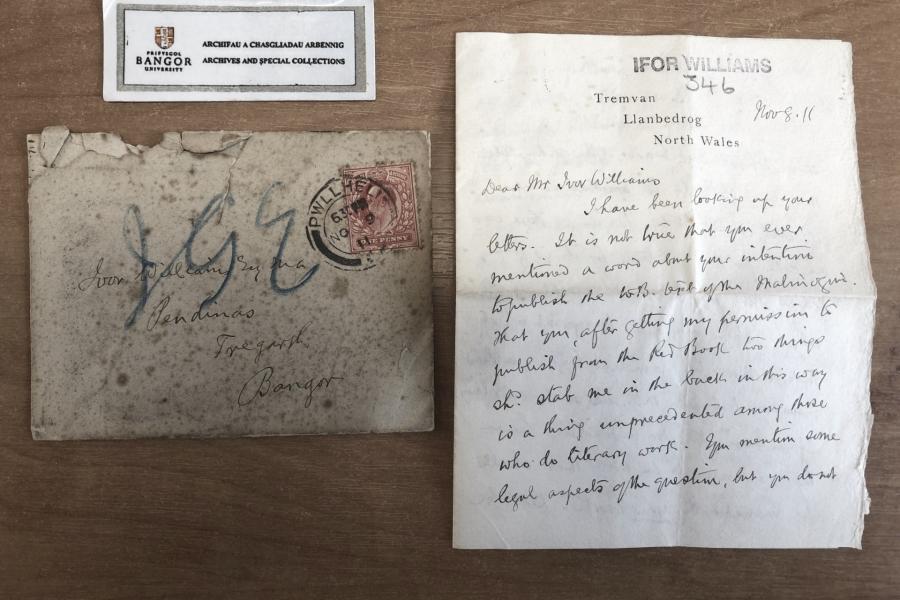 PRIFYSGOL
BANGOR
UNIVERSITY
ARCHIFAU A CHASGLIADAU ARBENNIG
ARCHIVES AND SPECIAL COLLECTIONS
PWLLHELI
6.30 PM
NO 9
11
ONE PENNY
JGE
Ivor Williams Esq M.A.
Pendinas
Tregarth
Bangor
IFOR WILLIAMS
346
Tremvan
Llanbedrog
North Wales
Nov 8. 11
Dear Mr Ivor Williams
I have been looking up your
letters. It is not true that you ever
mentioned a word about your intention
to publish the W.B. text of the Mabinogion.
That you, after getting my permission to
publish from the Red Book two things
shd. stab me in the back in this way
is a thing unprecedented among those
who do literary work. You mention some
legal aspects of the question, but you do not